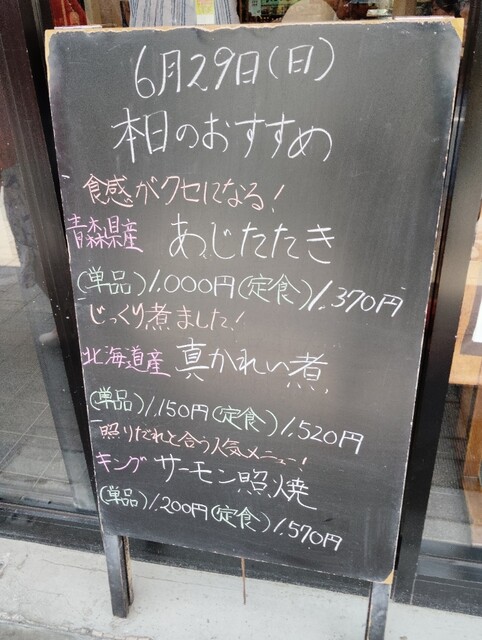 6月29日(日)
本日のおすすめ
食感がクセになる!
青森県産 あじたたき
(単品)1,000円(定食)1,370円
じっくり煮ました!
北海道産 真かれい煮
(単品)1,150円(定食)1,520円
照りだれと合う人気メニュー!
キングサーモン照焼
(単品)1,200円(定食)1,570円